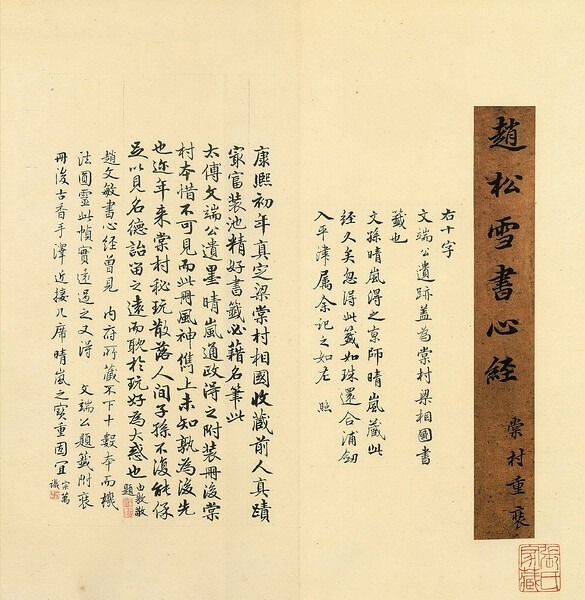 趙松雪書心經
棠村重裝
張氏
家藏
右十字
文端公遺跡蓋為棠村梁相國書
籤也
文孫晴嵐得之京師晴嵐藏此
經久矣忽得此籤如珠還合浦劒
入平津屬余記之如左 照
康熙初年真定梁棠村相國收藏前人真蹟
家富裝池精好書籤必藉名筆此
太傅文端公遺墨晴嵐通政得之附裝冊後棠
村本惜不可見而此冊風神儁上未知孰為後先
也近年来棠村秘玩散落人間子孫不復能保
足以見名德詒留之遠而耽於玩好為大惑也 由敦敬題
趙文敏書心經曾見 内府所藏不下十數本而機
法圓靈此幀實遠過之又得 文端公題籤附裝
冊後古香手澤近接几席晴嵐之寶重固宜 宗萬識